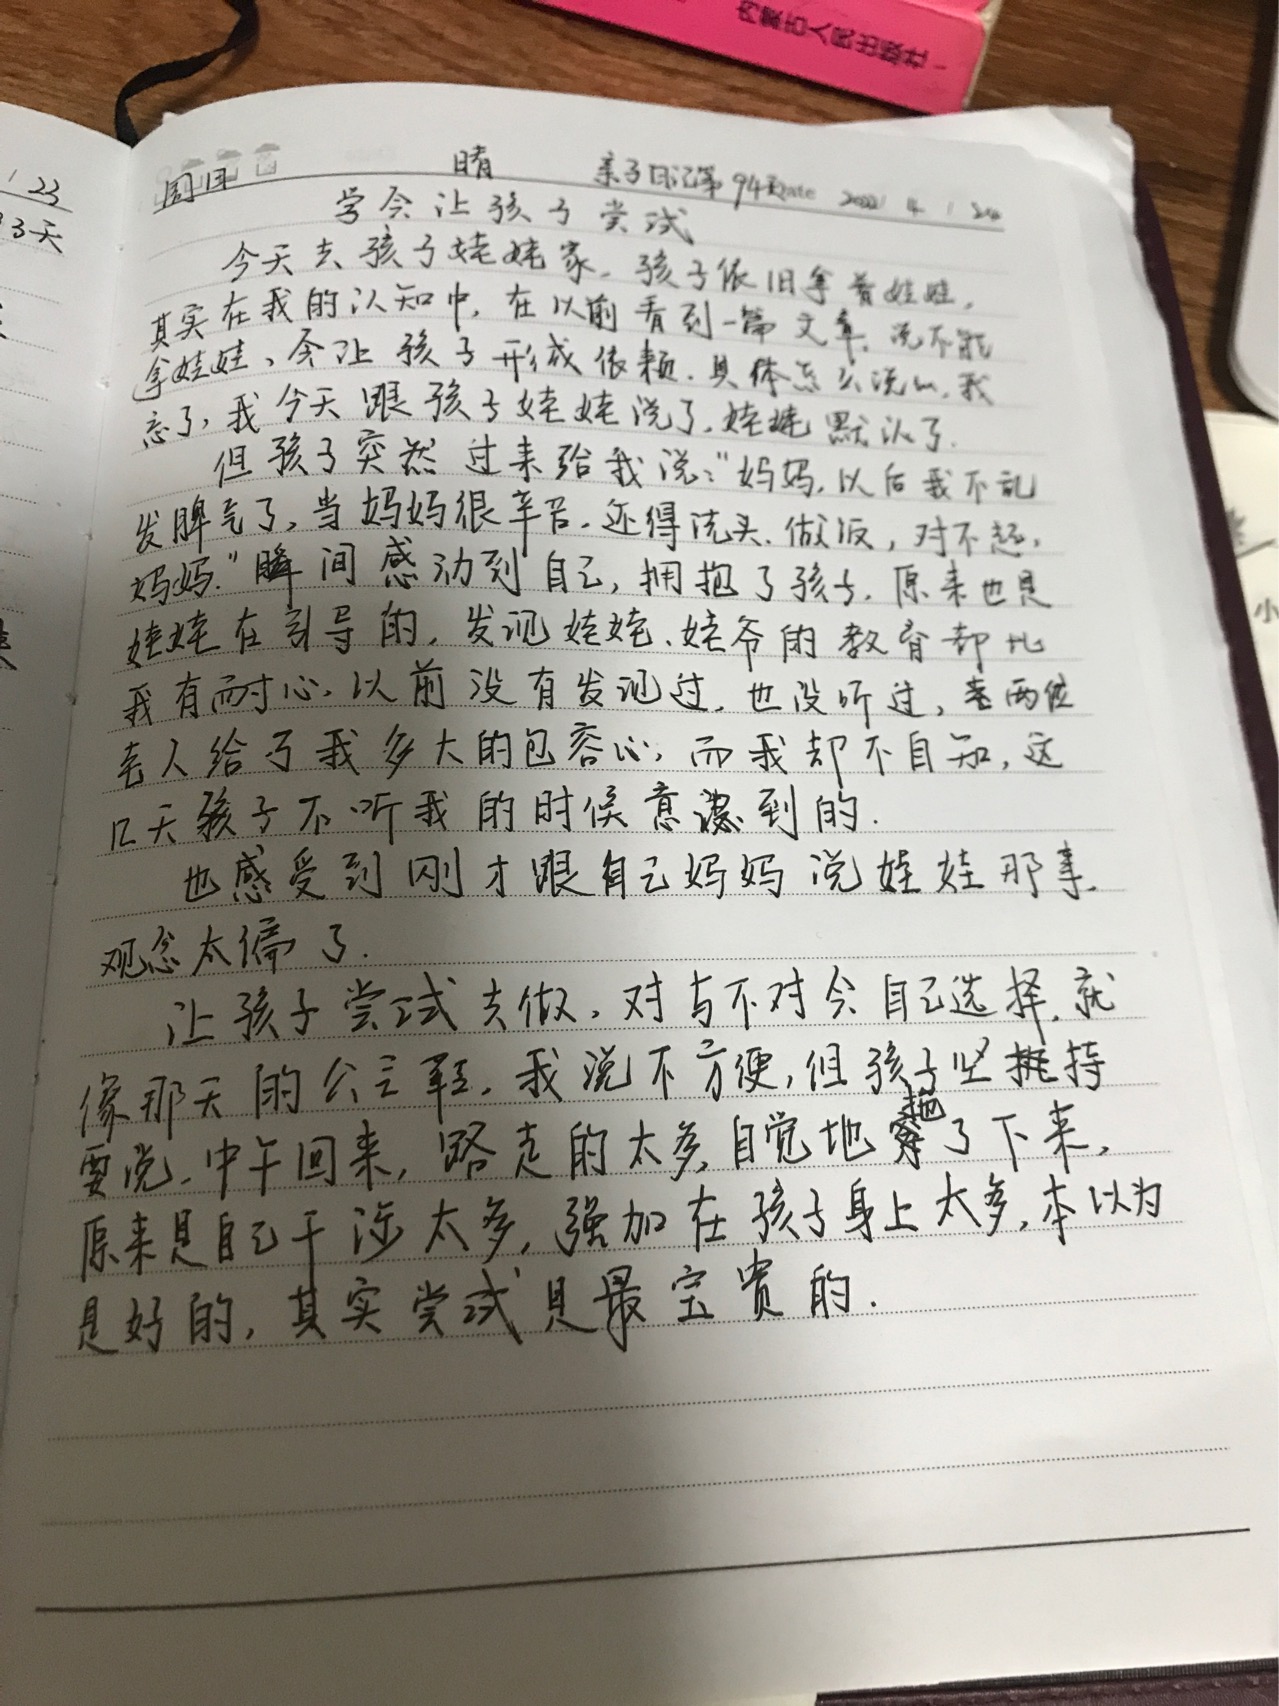 内蒙古人民出版社
1 23
93天
周日 晴 亲子日记第94天 Date 2022 / 4 / 24
学会让孩子尝试
今天去孩子姥姥家。孩子依旧拿着娃娃,
其实在我的认知中,在以前看到一篇文章,说不能
拿娃娃、会让孩子形成依赖.具体怎么说的,我
忘了,我今天跟孩子姥姥说了,姥姥默认了.
但孩子突然过来给我说:"妈妈,以后我不乱
发脾气了,当妈妈很辛苦.还得洗头、做饭,对不起,
妈妈."瞬间感动到自己,拥抱了孩子.原来也是
姥姥在引导的,发现姥姥、姥爷的教育都比
我有耐心,以前没有发现过,也没听过,老两位
老人给了我多大的包容心,而我却不自知,这
几天孩子不听我的时候意识到的.
也感受到刚才跟自己妈妈说娃娃那事.
观念太偏了.
让孩子尝试去做,对与不对会自己选择,就
像那天的公主鞋,我说不方便,但孩子坚持
要说.中午回来,路走的太多,自觉地拖了下来,
原来是自己干涉太多,强加在孩子身上太多,本以为
是好的,其实尝试是最宝贵的.
小